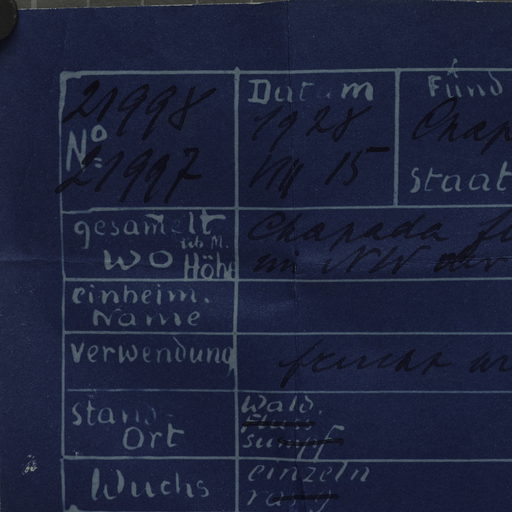 21998
Nº
21997
Datum
1928
VIII 15
Fund
Chap
Staat
gesammelt
wo
üb M.
Höhe
Chapada
im NW
einheim.
Name
Verwendung
frucht
stand-
Ort
Wald.
Fluss
sumpf
Wuchs
einzeln
rasig